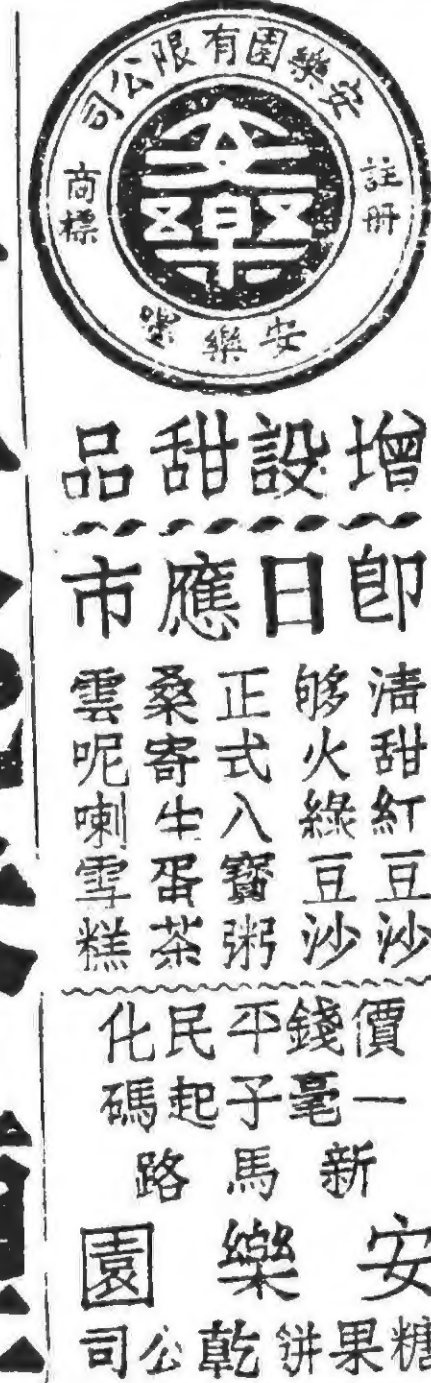 安樂園有限公司
註冊
商標
安樂
安樂
增設甜品
卽日應市
清甜紅豆沙
够火綠豆沙
正式八寶粥
桑寄生蛋茶
雲呢喇雪糕
價錢平民化
一毫子起碼
新馬路
安樂園
糖果餅乾公司